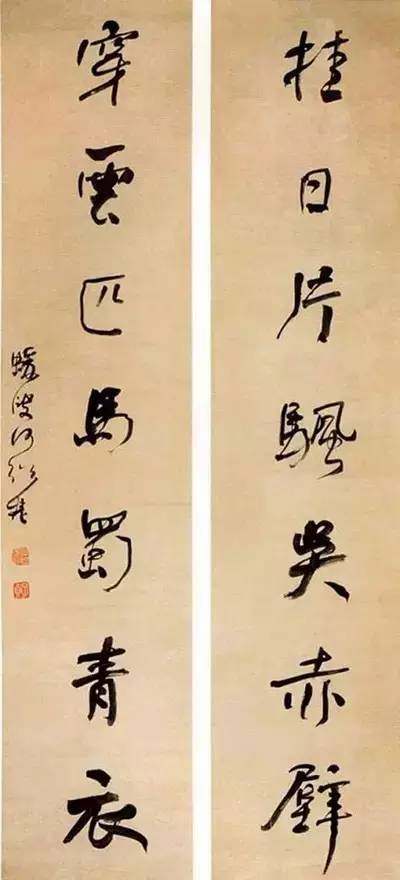 挂日片颿吳赤壁
穿雲匹馬蜀青衣
蝯叟何紹基